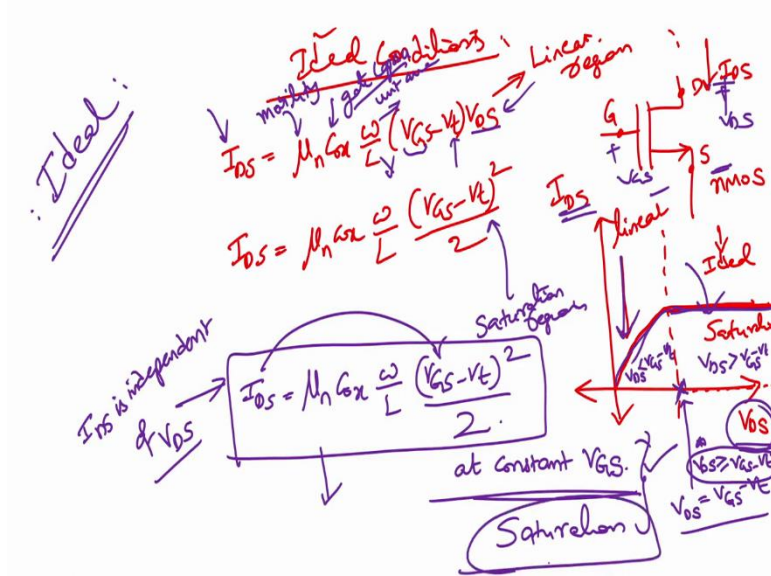 Ideal Conditions :
: Ideal :
mobility
gate
Linear region
I_DS = μn Cox ω/L (VGS-Vt) VDS
I_DS = μn Cox ω/L (VGS-Vt)²/2
Saturation Region
I_DS is independent of VDS
I_DS = μn Cox ω/L (VGS-Vt)²/2.
at constant VGS.
Saturation
D
IDS
VDS
G
+
VGS
S
nMOS
IDS
linear
Ideal
VDS < VGS-Vt
VDS > VGS-Vt
VDS
VDS ≥ VGS-Vt
VDS = VGS-Vt